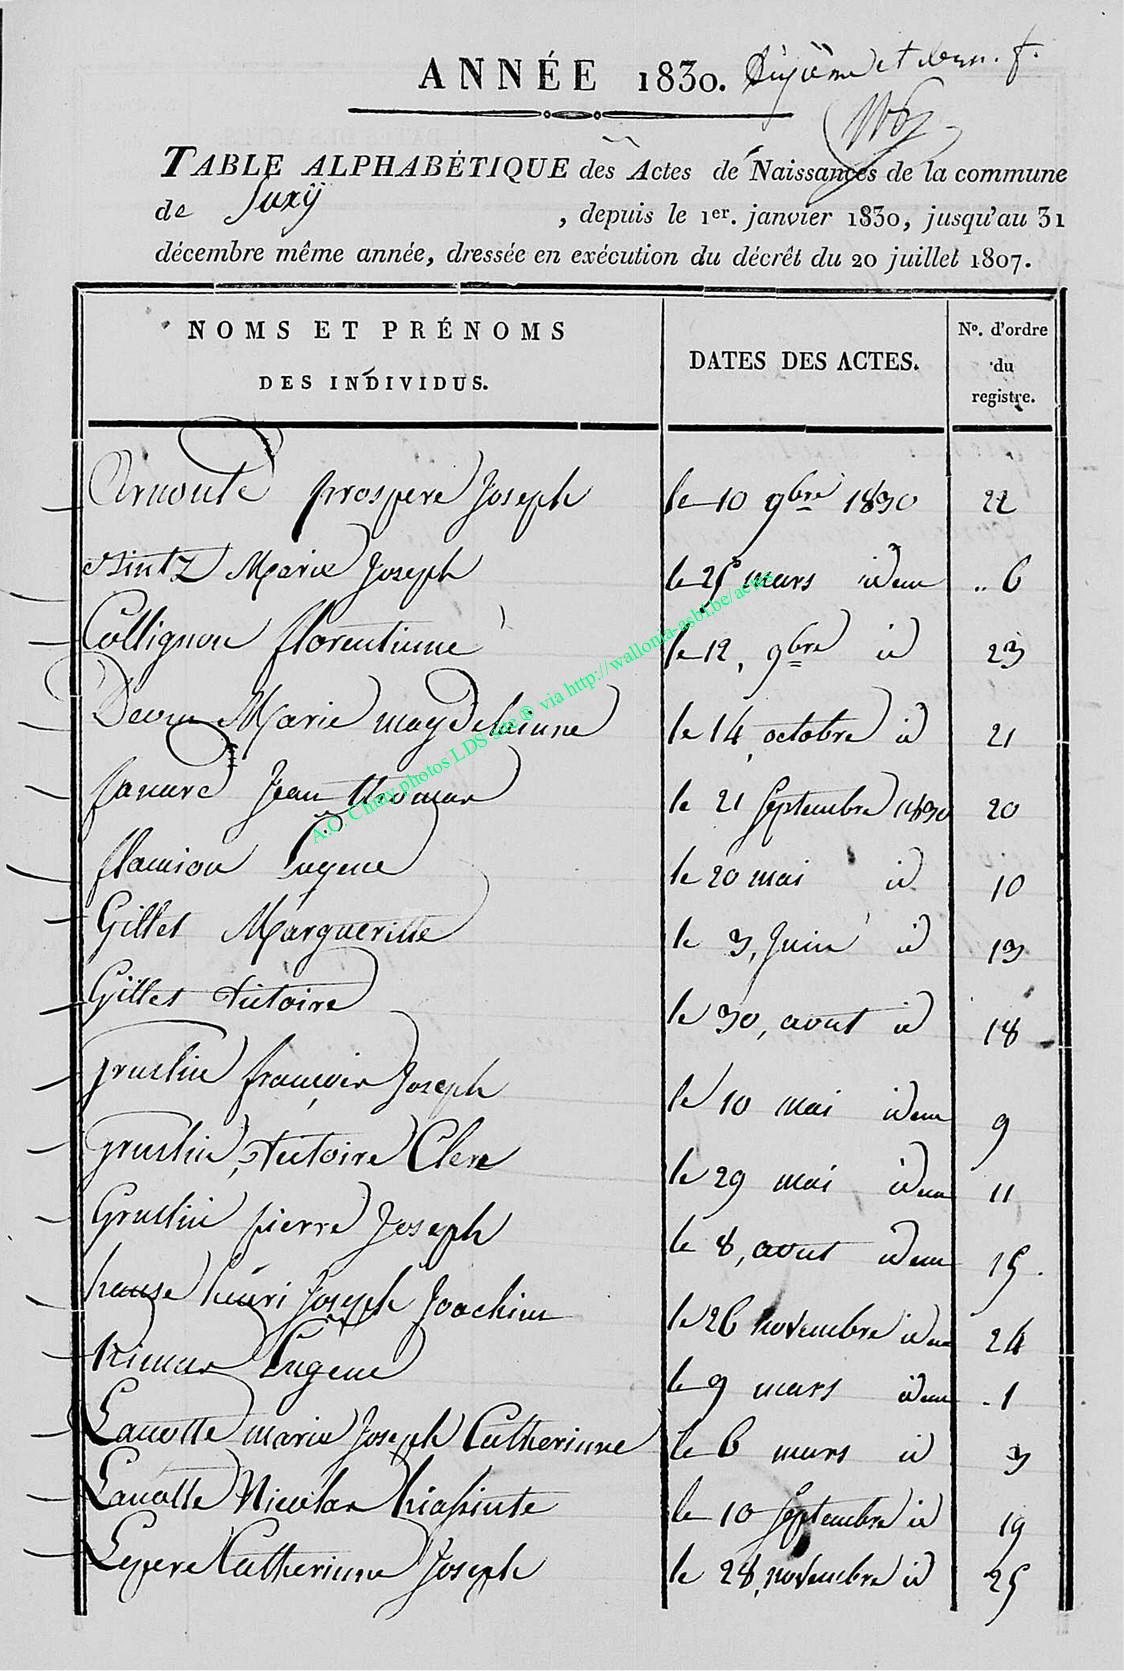 ANNÉE 1830. Dixième et dern. f.
TABLE ALPHABÉTIQUE des Actes de Naissances de la commune
de Suxÿ , depuis le 1er. janvier 1830, jusqu'au 31
décembre même année, dressée en exécution du décrêt du 20 juillet 1807.
NOMS ET PRÉNOMS
DES INDIVIDUS.
DATES DES ACTES.
No. d'ordre
du
registre.
Arnould prospere Joseph le 10 9bre 1830 22
Marie Joseph le 25 mars idem .. 6
Collignon florentinne le 12, 9bre id 23
Marie magdelainne le 14 octobre id 21
Jean thomas le 21 Septembre 1830 20
flamion Eugene le 20 mai id 10
Gillet Margueritte le 3, Juin id 13
Gillet victoire le 30, aout id 18
gruslin françois Joseph le 10 mai idem 9
gruslin, victoire Clere le 29 mai idem 11
Gruslin pierre Joseph le 8, aout idem 15.
hause hénri Joseph Joachim le 26 novembre idem 24
Eugene le 9 mars idem . 1
Lanotte marie Joseph Catherinne le 6 mars id 3
Lanotte Nicolas hiassinte le 10 Septembre id 19
Lepere Catherinne Joseph le 28, novembre id 25
A.G. Chimay photos LDS site ® via http://wallonia-asbl.be/actes